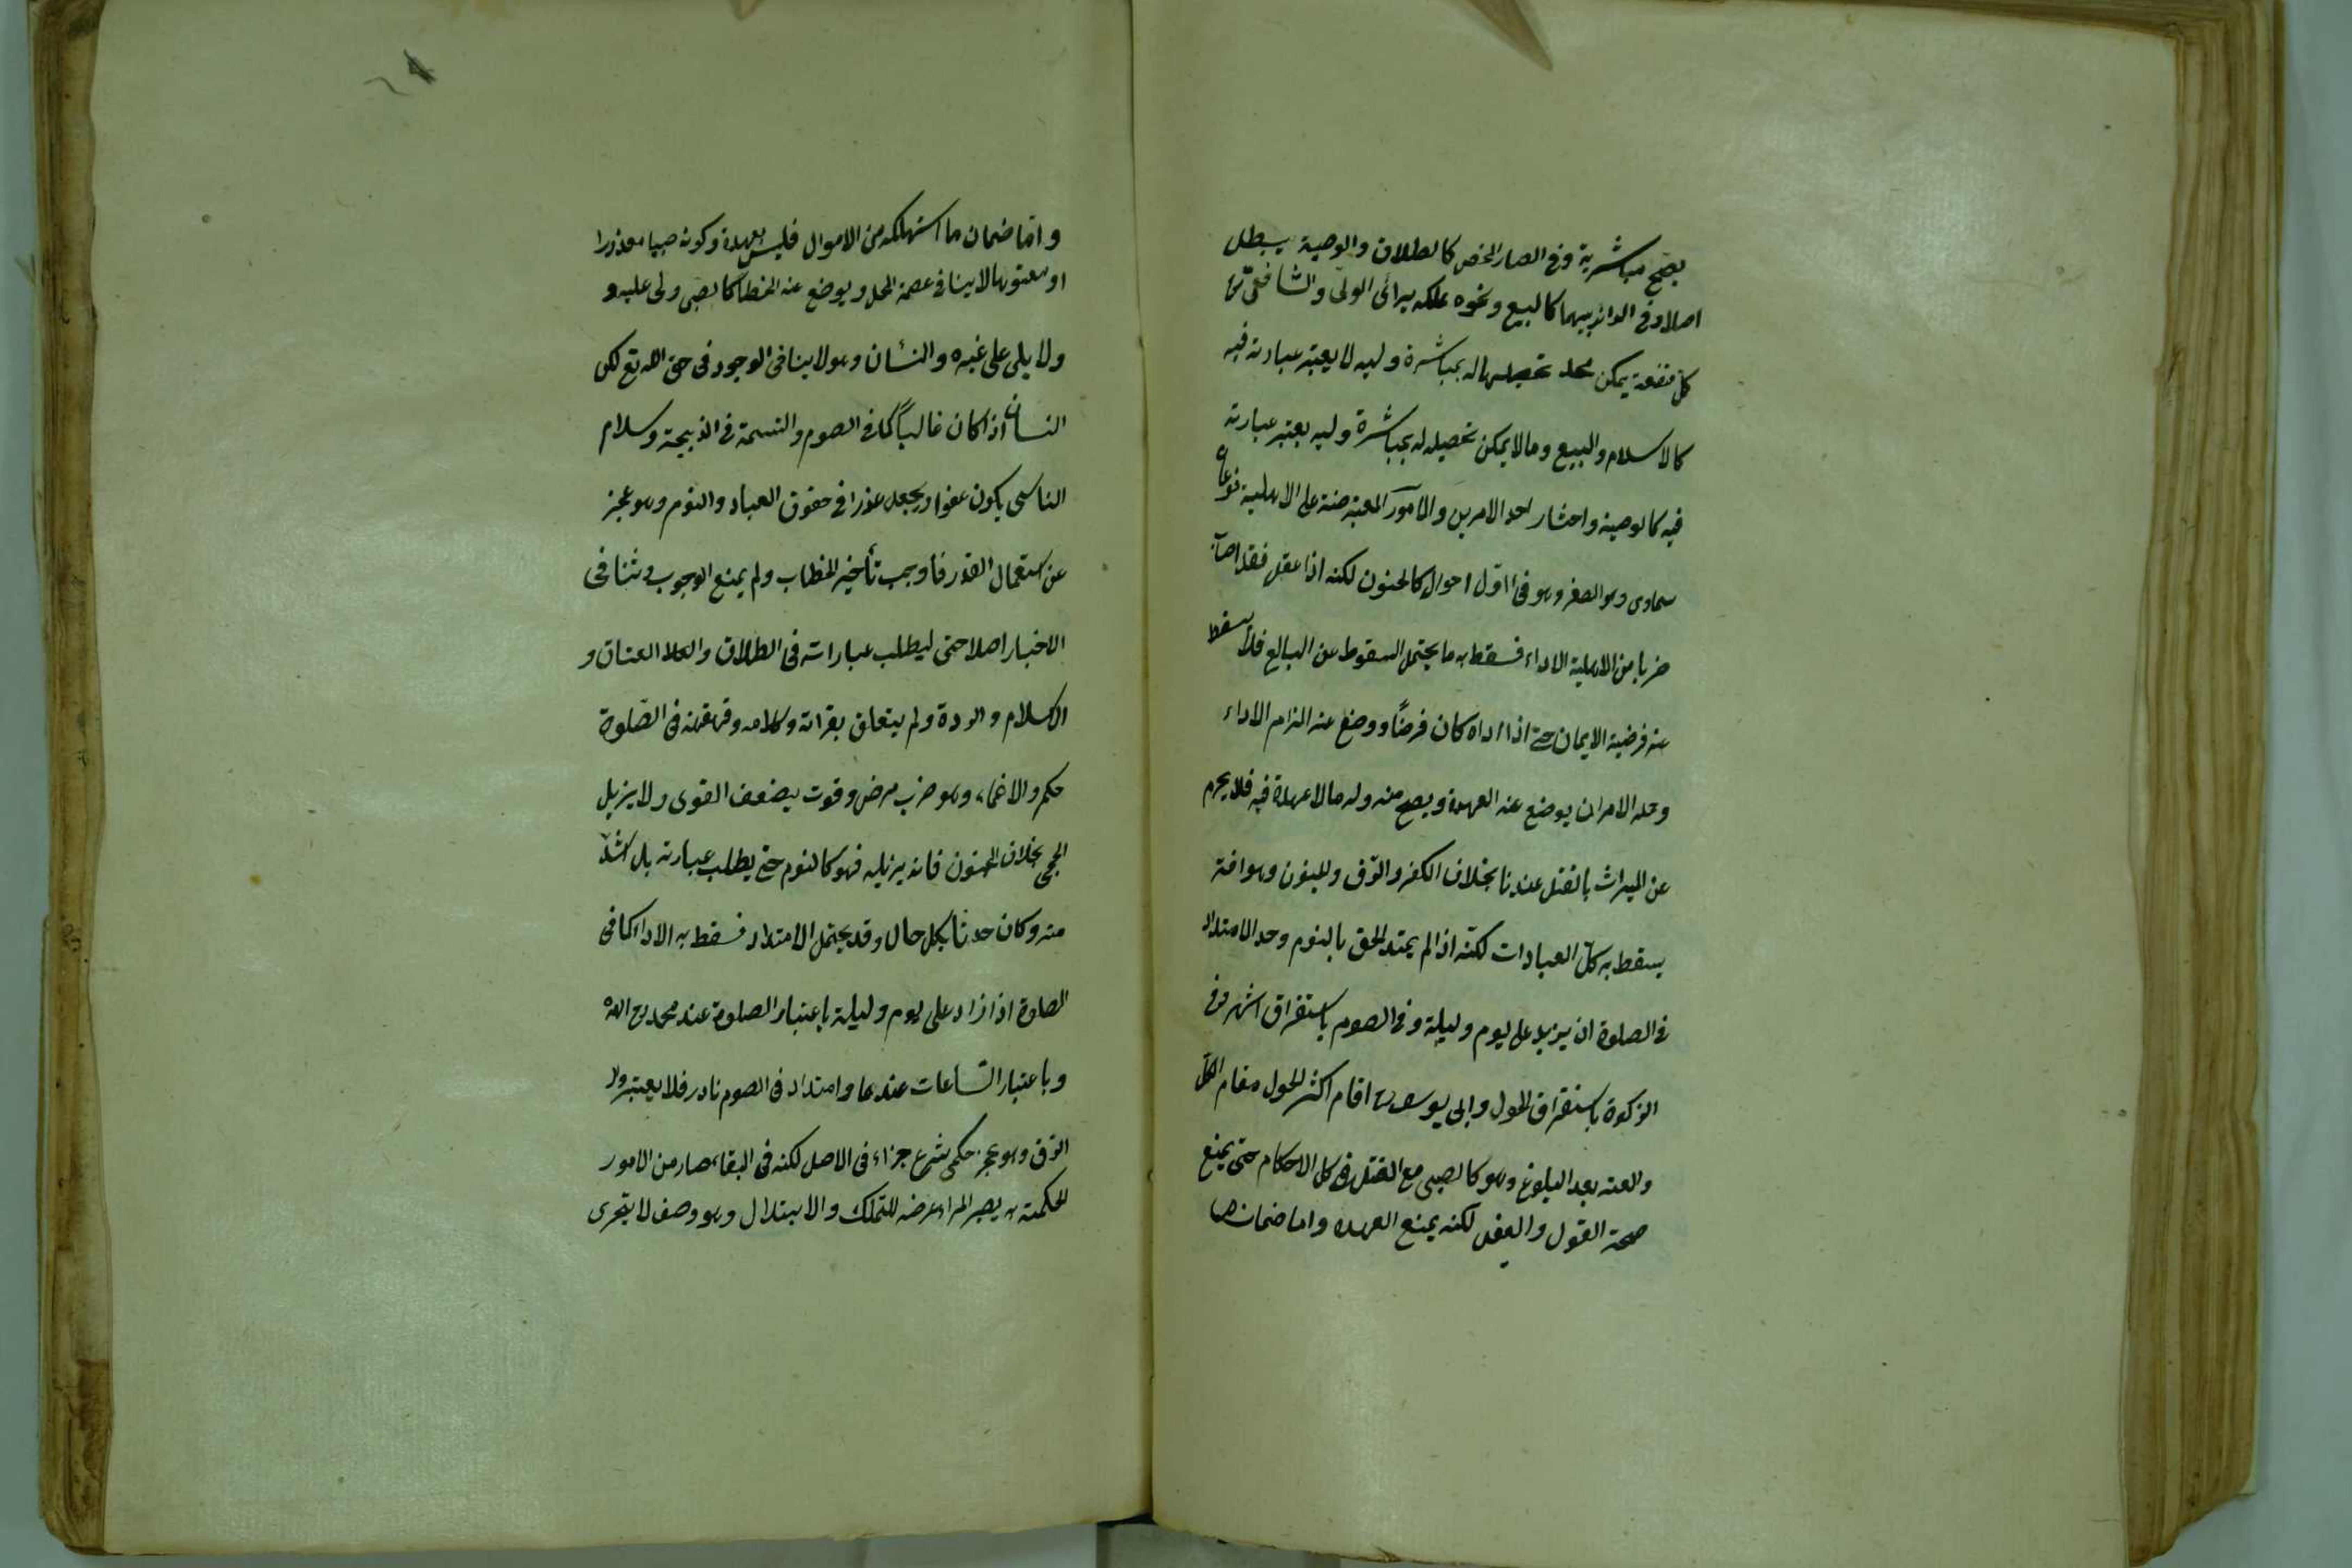 يصح مباشرية وفى الصار المحض كالطلاق والوصية يبطل
اصلا وفى الدائر بينهما كالبيع ونحوه يملكه برأى الولى والشافعى رح
كل منفعة يمكن تحصيلها له بمباشرة وليه لا يعتبر عبارته فيه
كالاسلام والبيع وما لا يمكن تحصيله له بمباشرة وليه يعتبر عبارته
فيه كالوصية واحشار احد الامرين والامور المعترضة على الاهلية نوعان
سماوى وهو الصغر وهو فى اول احواله كالجنون لكنه اذا عقل فقد اصاب
ضربا من الاهلية الاداء فسقط به ما يحتمل السقوط عن البالغ فلا يسقط
عنه فرضية الايمان حتى اذا اداه كان فرضًا ووضع عنه الزام الاداء
وحله الامر ان يوضع عنه العهدة ويصح منه وله مالا عهدة فيه فلا يحرم
عن الميراث بالقتل عندنا بخلاف الكفر والرق والجنون وهو افة
يسقط به كل العبادات لكنه اذا لم يمتد الحق بالنوم وحد الامتداد
فى الصلوة ان يزيد على يوم وليلة وفى الصوم باستغراق الشهر وفى
الزكوة باستغراق الحول وابى يوسف رح اقام اكثر الحول مقام الكل
والعته بعد البلوغ وهو كالصبى مع العقل فى كل الاحكام حتى يمنع
صحة القول والفعل لكنه يمنع العهدة واما ضمان ما
واما ضمان ما استهلكه من الاموال فليس بعهدة وكونه صبيا معذورا
او معتوها لا ينافى عصمة المحل ويوضع عنه الخطا كالصبى ولى عليه و
ولا يلى على غيره والنسأن وهو لا ينافى الوجود فى حق الله تع لكن
النسان اذا كان غالباً كما فى الصوم والتسمة فى الذبيحة وسلام
الناسى يكون عفوا ويجعل عذرا فى حقوق العباد والنوم وهو عجز
عن استعمال القدرة فاوجب تأخير الخطاب ولم يمنع الوجوب وثنافى
الاختيار اصلا حتى ليطلب عباراته فى الطلاق والعلا العتاق و
الاسلام والردة ولم يتعلق بقراته وكلامه وقهقهة فى الصّلوة
حكم والاغماء وهو ضرب مرض وقوت يضعف القوى ولا يزيل
الحجى بخلاف الجنون فانه يزيله فهو كالنوم حتى يطلب عبارته بل اشدّ
منه وكان حدثا بكل حال وقد يحتمل الامتداد فسقط به الاداء كما فى
الصلوة اذا زاد على يوم وليلة باعتبار الصلوة عند محمد رح الله
وباعتبار الساعات عندهما وامتداد فى الصوم نادر فلا يعتبر ولا
الرق وهو عجز حكمى شرع جزاء فى الاصل لكنه فى البقا صار من الامور
الحكمية به يصير المراد عرضه للتملك والابتلال وهو وصف لا يتجزى